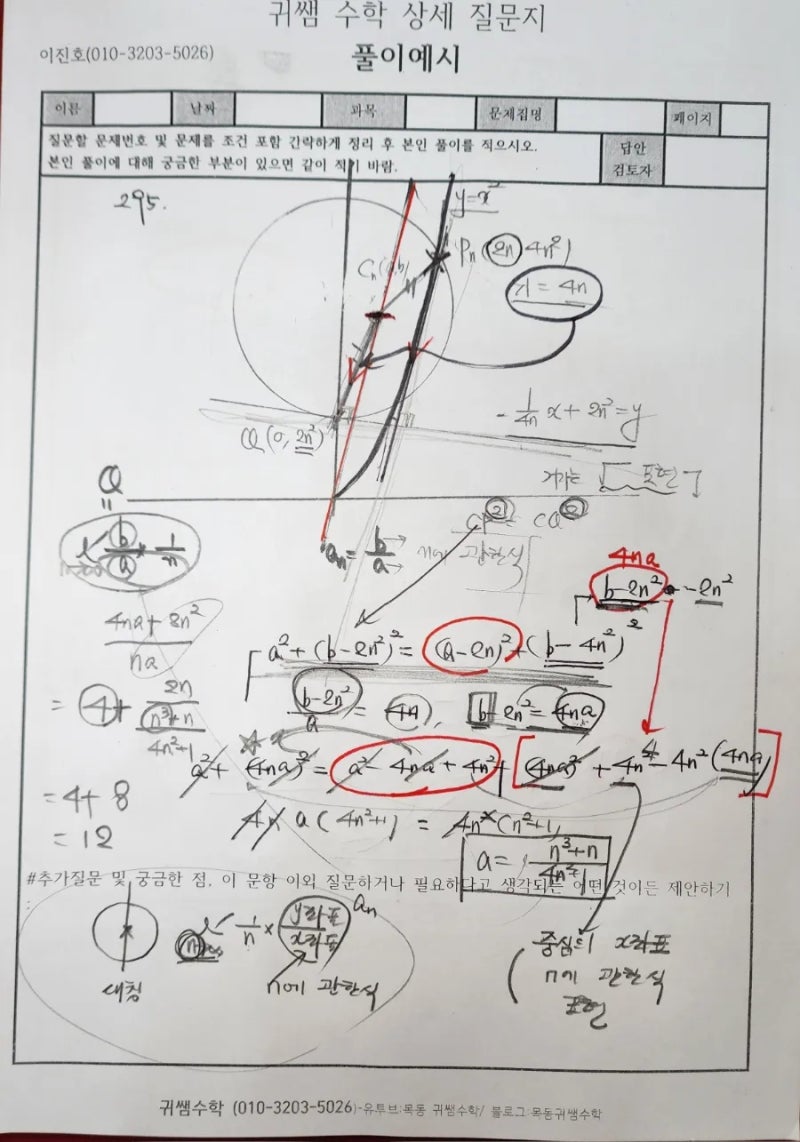 귀쌤 수학 상세 질문지
이진호(010-3203-5026)
풀이예시
이름 날짜 과목 문제집명 페이지
질문할 문제번호 및 문제를 조건 포함 간략하게 정리 후 본인 풀이를 적으시오.
본인 풀이에 대해 궁금한 부분이 있으면 같이 적기 바람.
답안
검토자
295.
y=x²
Pn(2n, 4n²)
Cn(a,b)
= 4n
-1/4n x + 2n² = y
Q(0, 2n²)
표현
Q
=
b/a × 1/n
an = b/a
n에 관한식
CP² = CQ²
4na
b-2n² = -2n²
4na+2n²/na
a² + (b-2n²)² = (a-2n)² + (b-4n²)²
b-2n²/a = 4n, b-2n² = 4na
= 4 + 2n/n³+n/4n²+1
a² + (4na)² = a² - 4na + 4n² + [(4na)² + 4n⁴ - 4n²(4na)]
= 4 + 8
4n a(4n²+1) = 4n²(n²+1)
= 12
a = n³+n/4n²+1
#추가질문 및 궁금한 점, 이 문항 이외 질문하거나 필요하다고 생각되는 어떤 것이든 제안하기
:
1/n × y좌표/x좌표 an
대칭
n에 관한식
중심의 x좌표
n에 관한식
표현
귀쌤수학 (010-3203-5026)-유투브:목동 귀쌤수학/ 블로그:목동귀쌤수학